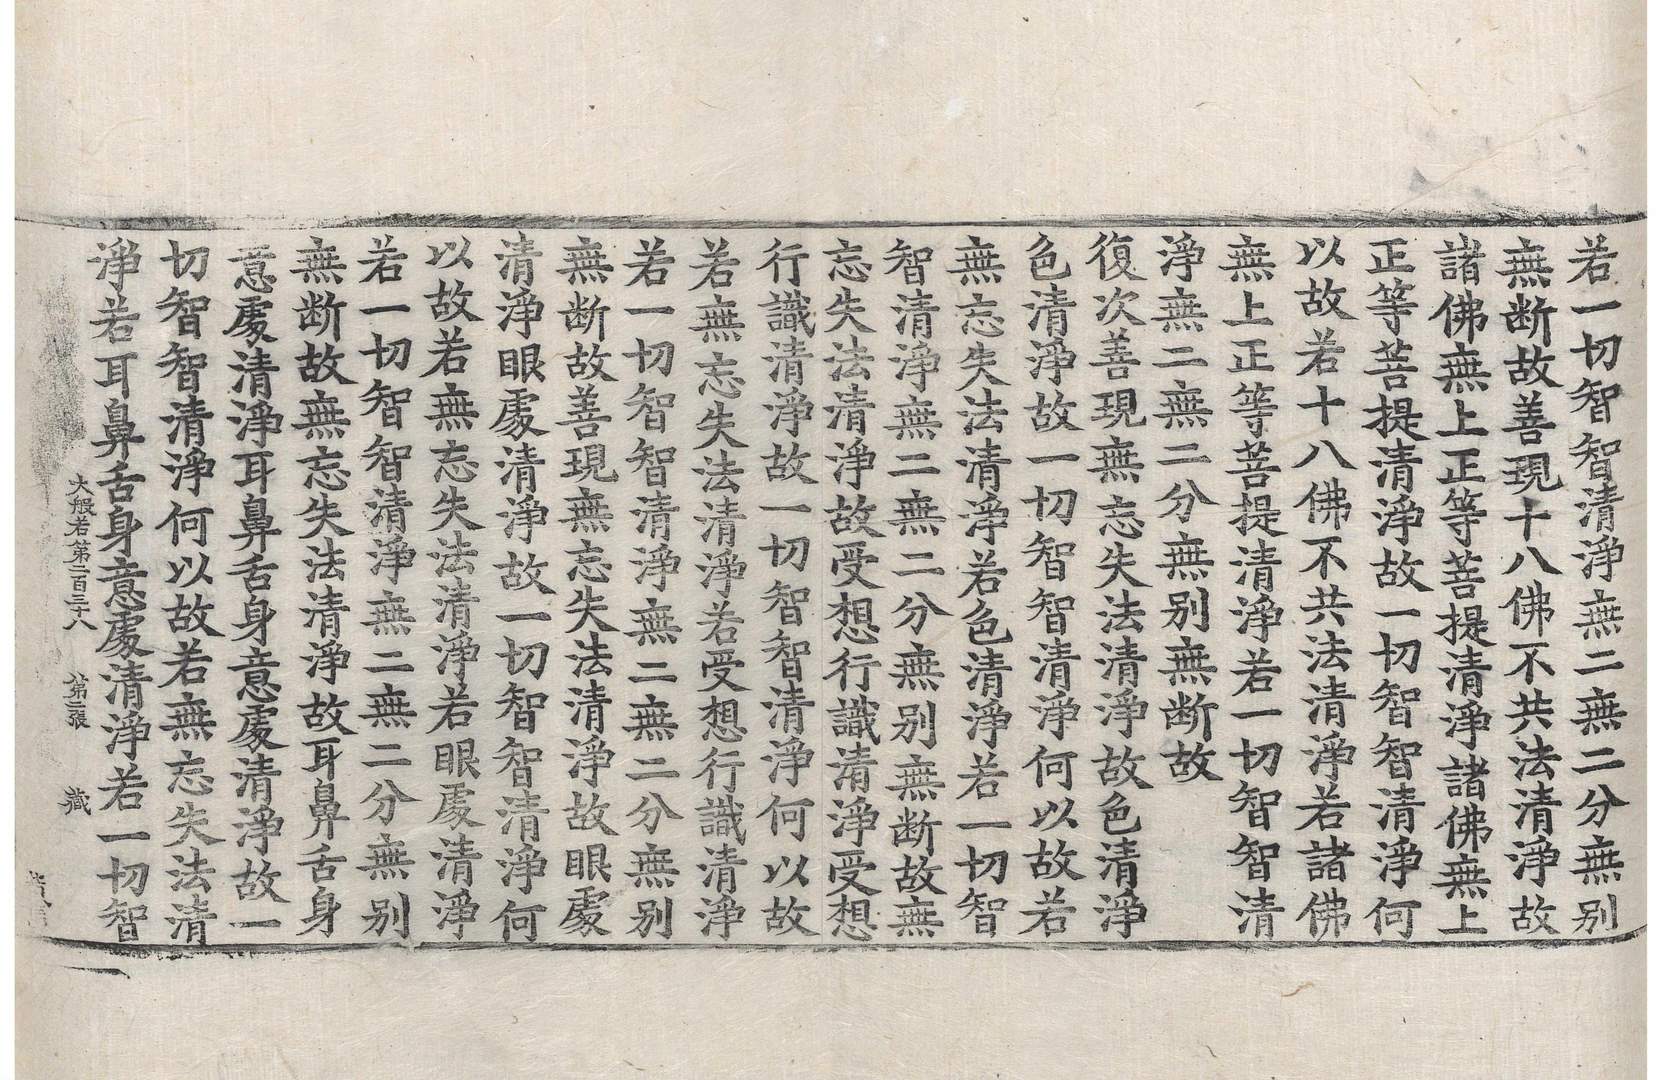 若一切智智清淨無二無二分無別
無断故善現十八佛不共法清淨故
諸佛無上正等菩提清淨諸佛無上
正等菩提清淨故一切智智清淨何
以故若十八佛不共法清淨若諸佛
無上正等菩提清淨若一切智智清
淨無二無二分無別無断故
復次善現無忘失法清淨故色清淨
色清淨故一切智智清淨何以故若
無忘失法清淨若色清淨若一切智
智清淨無二無二分無別無断故無
忘失法清淨故受想行識清淨受想
行識清淨故一切智智清淨何以故
若無忘失法清淨若受想行識清淨
若一切智智清淨無二無二分無別
無断故善現無忘失法清淨故眼處
清淨眼處清淨故一切智智清淨何
以故若無忘失法清淨若眼處清淨
若一切智智清淨無二無二分無別
無断故無忘失法清淨故耳鼻舌身
意處清淨耳鼻舌身意處清淨故一
切智智清淨何以故若無忘失法清
淨若耳鼻舌身意處清淨若一切智
大般若第二百三十八 第二張 藏